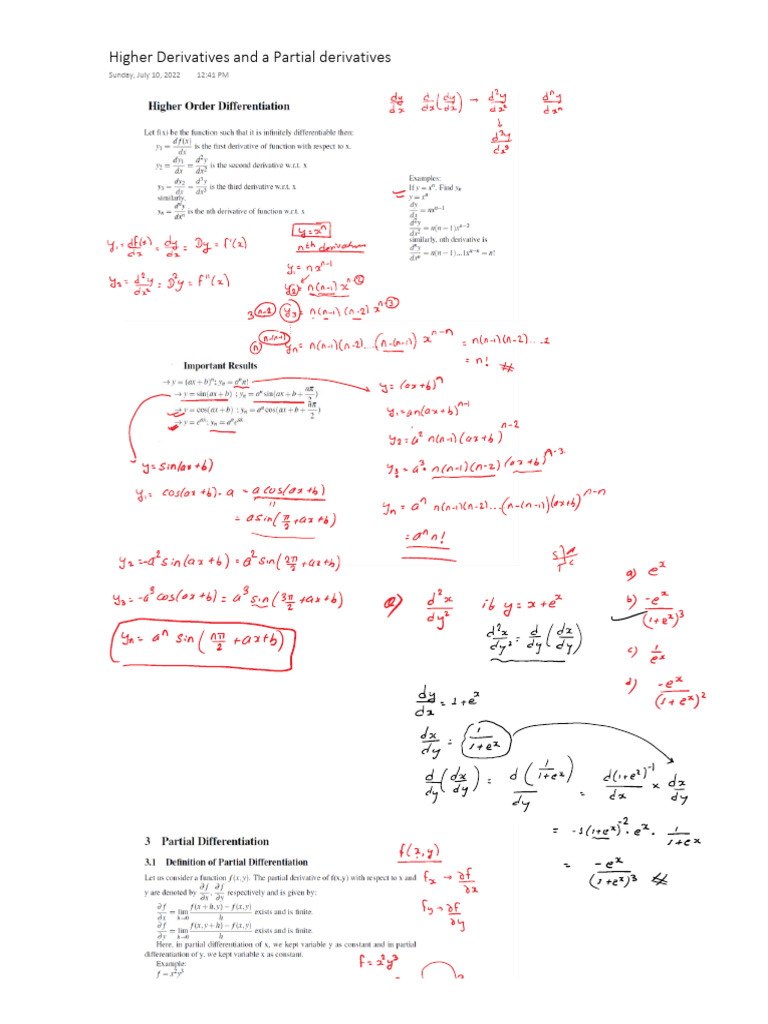 Higher Derivatives and a Partial derivatives
Sunday, July 10, 2022 12:41 PM
Higher Order Differentiation
Let f(x) be the function such that it is infinitely differentiable then:
y₁ = df(x)/dx is the first derivative of function with respect to x.
y₂ = dy₁/dx = d²y/dx² is the second derivative w.r.t. x
y₃ = dy₂/dx = d³y/dx³ is the third derivative w.r.t. x
similarly,
yₙ = dⁿy/dxⁿ is the nth derivative of function w.r.t. x
dy/dx d/dx (dy/dx) → d²y/dx² dⁿy/dxⁿ
↓
d³y/dx³
Examples:
If y = xⁿ. Find yₙ
y = xⁿ
dy/dx = nxⁿ⁻¹
d²y/dx² = n(n−1)xⁿ⁻²
similarly, nth derivative is
dⁿy/dxⁿ = n(n−1)...1xⁿ⁻ⁿ = n!
y₁ = df(x)/dx = dy/dx = Dy = f'(x)
y₂ = d²y/dx² = D²y = f''(x)
y = xⁿ
nth derivative
y₁ = n xⁿ⁻¹
y₂ = n(n-1) xⁿ⁻²
3 n-2 y₃ = n(n-1)(n-2) xⁿ⁻³
n n-(n-1) yₙ = n(n-1)(n-2)...(n-(n-1)) xⁿ⁻ⁿ = n(n-1)(n-2)...1
= n! #
Important Results
→ y = (ax+b)ⁿ ; yₙ = aⁿn!
→ y = sin(ax+b) ; yₙ = aⁿ sin(ax+b+ nπ/2)
→ y = cos(ax+b) ; yₙ = aⁿ cos(ax+b+ nπ/2)
→ y = eᵃˣ ; yₙ = aⁿeᵃˣ
y = (ax+b)ⁿ
y₁ = an(ax+b)ⁿ⁻¹
y₂ = a² n(n-1)(ax+b)ⁿ⁻²
y₃ = a³ · n(n-1)(n-2) (ax+b)ⁿ⁻³
yₙ = aⁿ n(n-1)(n-2)...(n-(n-1))(ax+b)ⁿ⁻ⁿ
= aⁿ n!
y = sin(ax+b)
y₁ = cos(ax+b)·a = a cos(ax+b)
= a sin(π/2 + ax+b)
y₂ = -a² sin(ax+b) = a² sin(2π/2 + ax+b)
y₃ = -a³ cos(ax+b) = a³ sin(3π/2 + ax+b)
yₙ = aⁿ sin(nπ/2 + ax+b)
S A
T C
Q) d²x/dy² if y = x+eˣ
d²x/dy² = d/dy (dx/dy)
a) eˣ
b) -eˣ/(1+eˣ)³
c) 1/eˣ
d) -eˣ/(1+eˣ)²
dy/dx = 1+eˣ
dx/dy = 1/(1+eˣ)
d/dy (dx/dy) = d(1/(1+eˣ))/dy = d(1+eˣ)⁻¹/dx × dx/dy
= -1(1+eˣ)⁻² · eˣ · 1/(1+eˣ)
= -eˣ/(1+eˣ)³ #
3 Partial Differentiation
3.1 Definition of Partial Differentiation
Let us consider a function f(x,y). The partial derivative of f(x,y) with respect to x and
y are denoted by ∂f/∂x, ∂f/∂y respectively and is given by:
∂f/∂x = lim h→0 (f(x+h,y)−f(x,y))/h exists and is finite.
∂f/∂y = lim h→0 (f(x,y+h)−f(x,y))/h exists and is finite.
Here, in partial differentiation of x, we kept variable y as constant and in partial
differentiation of y, we kept variable x as constant.
Example:
f = x²y³
f(x,y)
fₓ → ∂f/∂x
f_y → ∂f/∂y
f = x²y³